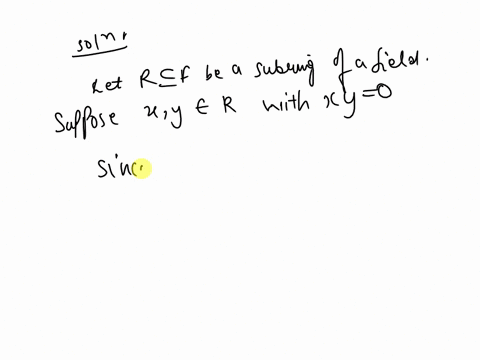 soln.
Let R⊆F be a subring of a field.
Suppose x, y ∈ R with xy=0
sinc